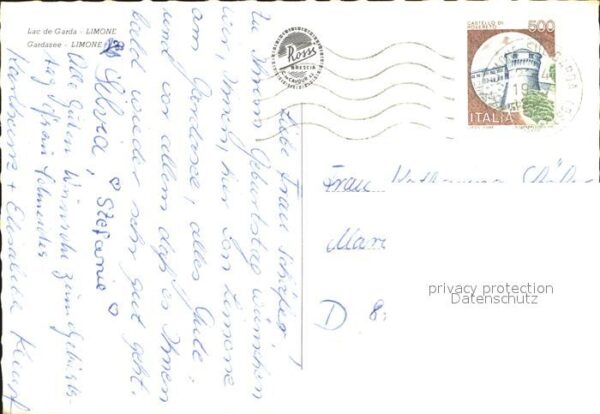 Lac de Garda - LIMONE
Gardasee - LIMONE
Liebe Frau Schäfer!
Zu Ihrem Geburtstag wünschen
wir Ihnen hier von Limone
am Gardasee, alles Gute,
und vor allem daß es Ihnen
bald wieder sehr gut geht.
Silvia, Stefanie
Alle guten Wünsche zum Geburts-
tag Schneider
+ Elisabeth
Ross
BRESCIA
CASTELLO DI
ROVERETO
500
ITALIA
19
Frau
Mari
D 8
privacy protection
Datenschutz